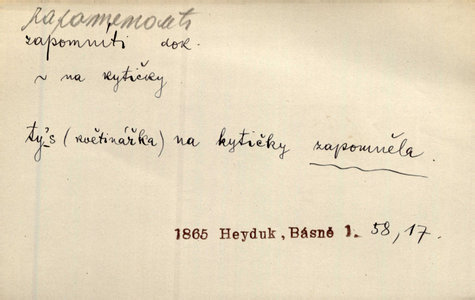 zapomenouti
zapomníti dok.
~ na kytičky
ty's (květinářka) na kytičky zapomněla.
1865 Heyduk, Básně 1. 58, 17.